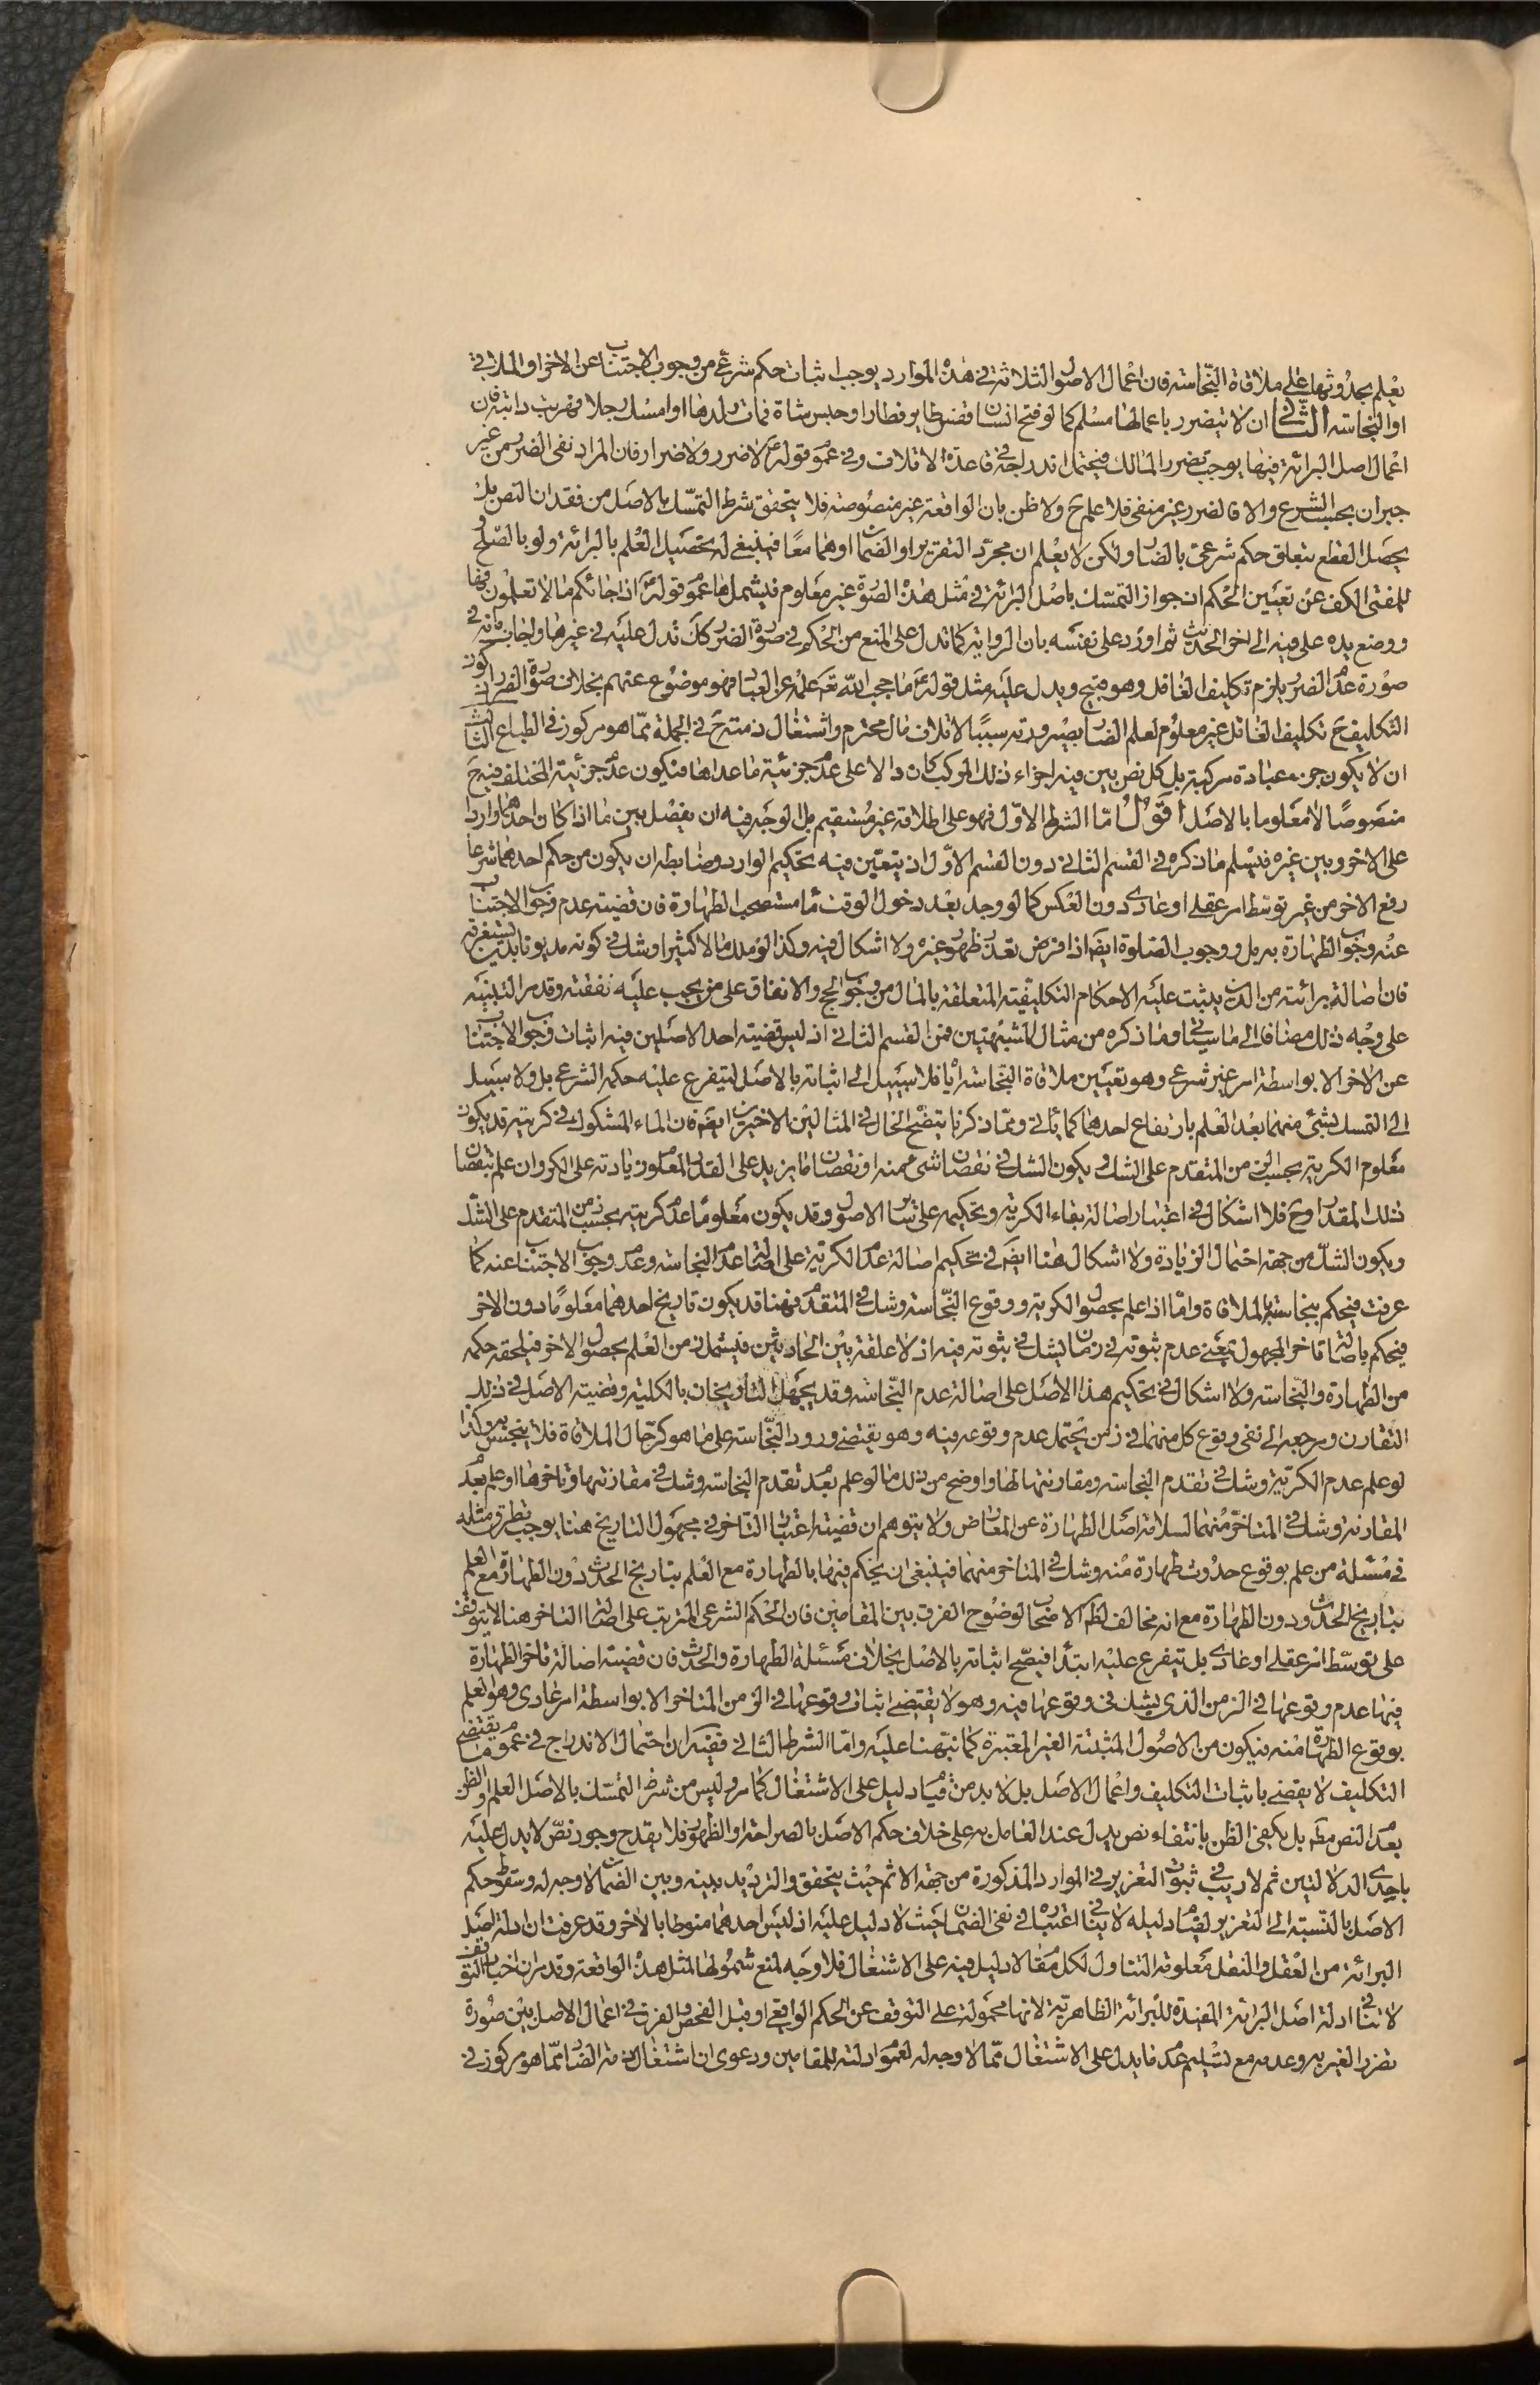 يعلم بحدوثها على ملاقاة النجاسة فان اعمال الاصول الثلاثة في هذه الموارد يوجب اثبات حكم شرعي من وجوب الاجتناب عن الاخر او الملاقي
او النجاسة الثاني ان لا يتضرر باعمالها مسلم كما لو فتح انسان قفس طاير فطار او حبس شاة فمات ولدها او امسك رجلا فهربت دابته فان
اعمال اصل البرائة فيها يوجب تضرر المالك فيحتمل اندراجه في قاعدة الاتلاف وفي عموم قوله ع لا ضرر ولا ضرار فان المراد نفى الضرر من غير
جبران بحسب الشرع والا فالضرر غير منفى فلا علم ح ولا ظن بان الواقعة غير منصوصة فلا يتحقق شرط التمسك بالاصل من فقدان النص بل
يحصل القطع بتعلق حكم شرعي بالضار ولكن لا يعلم ان مجرد التعزير او الضمان او هما معا فينبغي له تحصيل العلم بالبرائة ولو بالصلح
للمفتى الكف عن تعيين الحكم ان جواز التمسك باصل البرائة في مثل هذه الصورة غير معلوم فيشملها عموم قوله ع اذا جائكم ما لا تعلمون فها
ووضع يده على فيه الى اخر الحديث ثم اورد على نفسه بان الرواية كما تدل على المنع من الحكم في صورة الضرر كك تدل عليه في غيرها واجاب بانه في
صورة عدم الضرر يلزم تكليف الغافل وهو قبيح ويدل عليه مثل قوله ع ما حجب الله تع علمه عن العباد فهو موضوع عنهم بخلاف صورة الضرر اذ كون
التكليف ح تكليف الغافل غير معلوم لعلم الضار بصيرورته سببا لاتلاف مال محترم واشتغال ذمته ح في الجملة مما هو مركوز في الطباع الثالث
ان لا يكون جزء عبادة مركبة بل كل نص بين فيه اجزاء ذلك المركب كان دالا على عدم جزئية ما عداها فيكون عدم جزئية المختلف فيه ح
منصوصا لا معلوما بالاصل اقول اما الشرط الاول فهو على اطلاقه غير مستقيم بل الوجه فيه ان يفصل بين ما اذا كان احدهما واردا
على الاخر وبين غيره فيسلم ما ذكره في القسم الثاني دون القسم الاول اذ يتعين فيه تحكيم الوارد وضابطه ان يكون من حكم احدهما شرعا
رفع الاخر من غير توسط امر عقلي او عادي دون العكس كما لو وجد بعد دخول الوقت ماء مستصحب الطهارة فان قضيته عدم وجوب الاجتناب
عنه وجوب الطهارة به بل ووجوب الصلوة ايضا اذا فرض تعذر ظهور غيره ولا اشكال فيه وكذا لو ملك مالا كثيرا وشك في كونه مديونا بدين يستغرقه
فان اصالة برائته من الدين يثبت عليه الاحكام التكليفية المتعلقة بالمال من وجوب الحج والانفاق على من يجب عليه نفقته وقد مر التنبيه
على وجه ذلك مضافا الى ما سياتي وما ذكره من مثال المشتبهتين فمن القسم الثاني اذ ليس قضية احد الاصلين فيه اثبات وجوب الاجتناب
عن الاخر الا بواسطة امر غير شرعي وهو تعيين ملاقاة النجاسة اياه فلا سبيل الى اثباته بالاصل ليتفرع عليه حكمه الشرعي بل ولا سبيل
الى التمسك بشئ منهما بعد العلم بارتفاع احدهما كما ياتي ومما ذكرنا يتضح الحال في المثالين الاخيرين ايضا فان الماء المشكوك في كريته قد يكون
معلوم الكرية بحسب الزمن المتقدم على الشك ويكون الشك في نقصان شئ منه او نقصان ما يزيد على القدر المعلوم زيادته على الكر وان علم بنقصان
ذلك المقدار وح فلا اشكال في اعتبار اصالة بقاء الكرية وتحكيمه على ساير الاصول وقد يكون معلوما عدم كريته بحسب زمن المتقدم على الشك
ويكون الشك من جهة احتمال الزيادة ولا اشكال هنا ايضا في تحكيم اصالة عدم الكرية على اصالة عدم النجاسة وعدم وجوب الاجتناب عنه كما
عرفت فيحكم بنجاسته بالملاقاة واما اذا علم بحصول الكرية ووقوع النجاسة وشك في المتقدم فهنا قد يكون تاريخ احدهما معلوما دون الاخر
فيحكم باصالة تاخر المجهول بمعنى عدم ثبوته في زمان يشك في ثبوته فيه اذ لا علقة بين الحادثين فيشمل زمن العلم بحصول الاخر فيلحقه حكمه
من الطهارة والنجاسة ولا اشكال في تحكيم هذا الاصل على اصالة عدم النجاسة وقد يجهل التاريخان بالكلية وقضية الاصل في ذلك
التقارن ومرجعه الى نفى وقوع كل منهما في زمن يحتمل عدم وقوعه فيه وهو يقتضي ورود النجاسة على ما هو كر حال الملاقاة فلا يتنجس به وكذا
لو علم عدم الكرية وشك في تقدم النجاسة ومقارنتها لها واوضح من ذلك ما لو علم بعدم تقدم النجاسة وشك في مقارنتها وتاخرها او علم بعدم
المقارنة وشك في المتاخر منهما لسلامة اصل الطهارة عن المعارض ولا يتوهم ان قضية اعتبار التاخر في مجهول التاريخ هنا يوجب تطرق مثله
في مسئلة من علم بوقوع حدوث طهارة منه وشك في المتاخر منهما فينبغي ان يحكم فيها بالطهارة مع العلم بتاريخ الحدث دون الطهارة مع العلم
بتاريخ الحدث ودون الطهارة مع انه مخالف لظ الاصحاب لوضوح الفرق بين المقامين فان الحكم الشرعي المترتب على اصالة التاخر هنا لا يتوقف
على توسط امر عقلي او عادي بل يتفرع عليه ابتداء فيصح اثباته بالاصل بخلاف مسئلة الطهارة والحدث فان قضية اصالة تاخر الطهارة
فيها عدم وقوعها في الزمن الذي يشك في وقوعها فيه وهو لا يقتضي اثبات وقوعها في الزمن المتاخر الا بواسطة امر عادي وهو العلم
بوقوع الطهارة منه فيكون من الاصول المثبتة الغير المعتبرة كما نبهنا عليه واما الشرط الثاني ففيه ان احتمال الاندراج في عموم ما يقتضي
التكليف لا يقضي باثبات التكليف واعمال الاصل بل لا بد من قيام دليل على الاشتغال كما مر وليس من شرط التمسك بالاصل العلم او الظن
بعدم النص مط بل يكفى الظن بانتفاء نص يدل عند العامل به على خلاف حكم الاصل بالصراحة او الظهور فلا يقدح وجود نص لا يدل عليه
باحدى الدلالتين ثم لا ريب في ثبوت التعزير في الموارد المذكورة من جهة الاثم حيث يتحقق والترديد بينه وبين الضمان لا وجه له وسقوط حكم
الاصل بالنسبة الى التعزير لقيام دليله لا ينافي اعتباره في نفى الضمان حيث لا دليل عليه اذ ليس احدهما منوطا بالاخر وقد عرفت ان ادلة اصل
البرائة من العقل والنقل معلومة التناول لكل مقام لا دليل فيه على الاشتغال فلا وجه لمنع شمولها لمثل هذه الواقعة وقد مر ان اخبار التوقف
لا تنافي ادلة اصل البرائة المفيدة للبرائة الظاهرية لانها محمولة على التوقف عن الحكم الواقعي او قبل الفحص والفرق في اعمال الاصل بين صورة
تضرر الغير به وعدمه مع تسليم عدم ما يدل على الاشتغال مما لا وجه له لعموم ادلته للمقامين ودعوى ان اشتغال ذمة الضار مما هو مركوز في